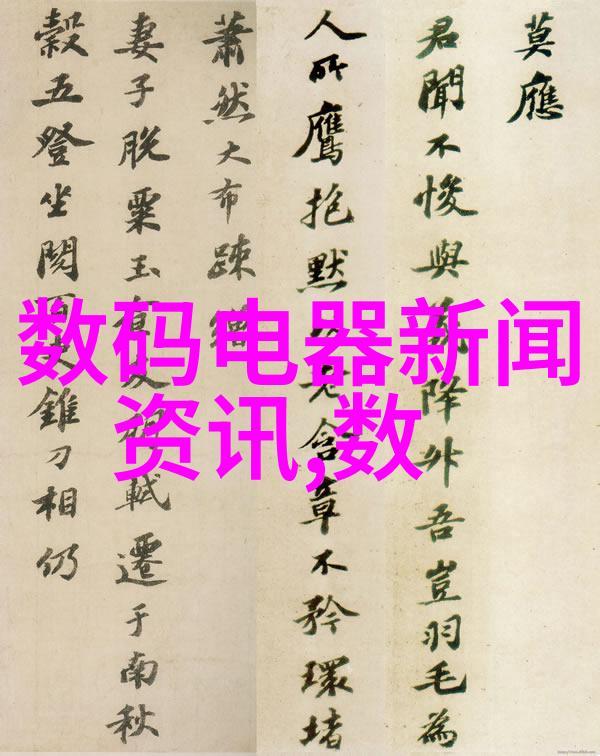 数码电器新闻
资讯,数
莫應
君聞不悛與降外吾豈羽毛為
人所鷹抱默含章不矜環堵
蕭然大布疎
妻子脫粟玉軾遷于南秋
穀五登坐閱錐刀相仍